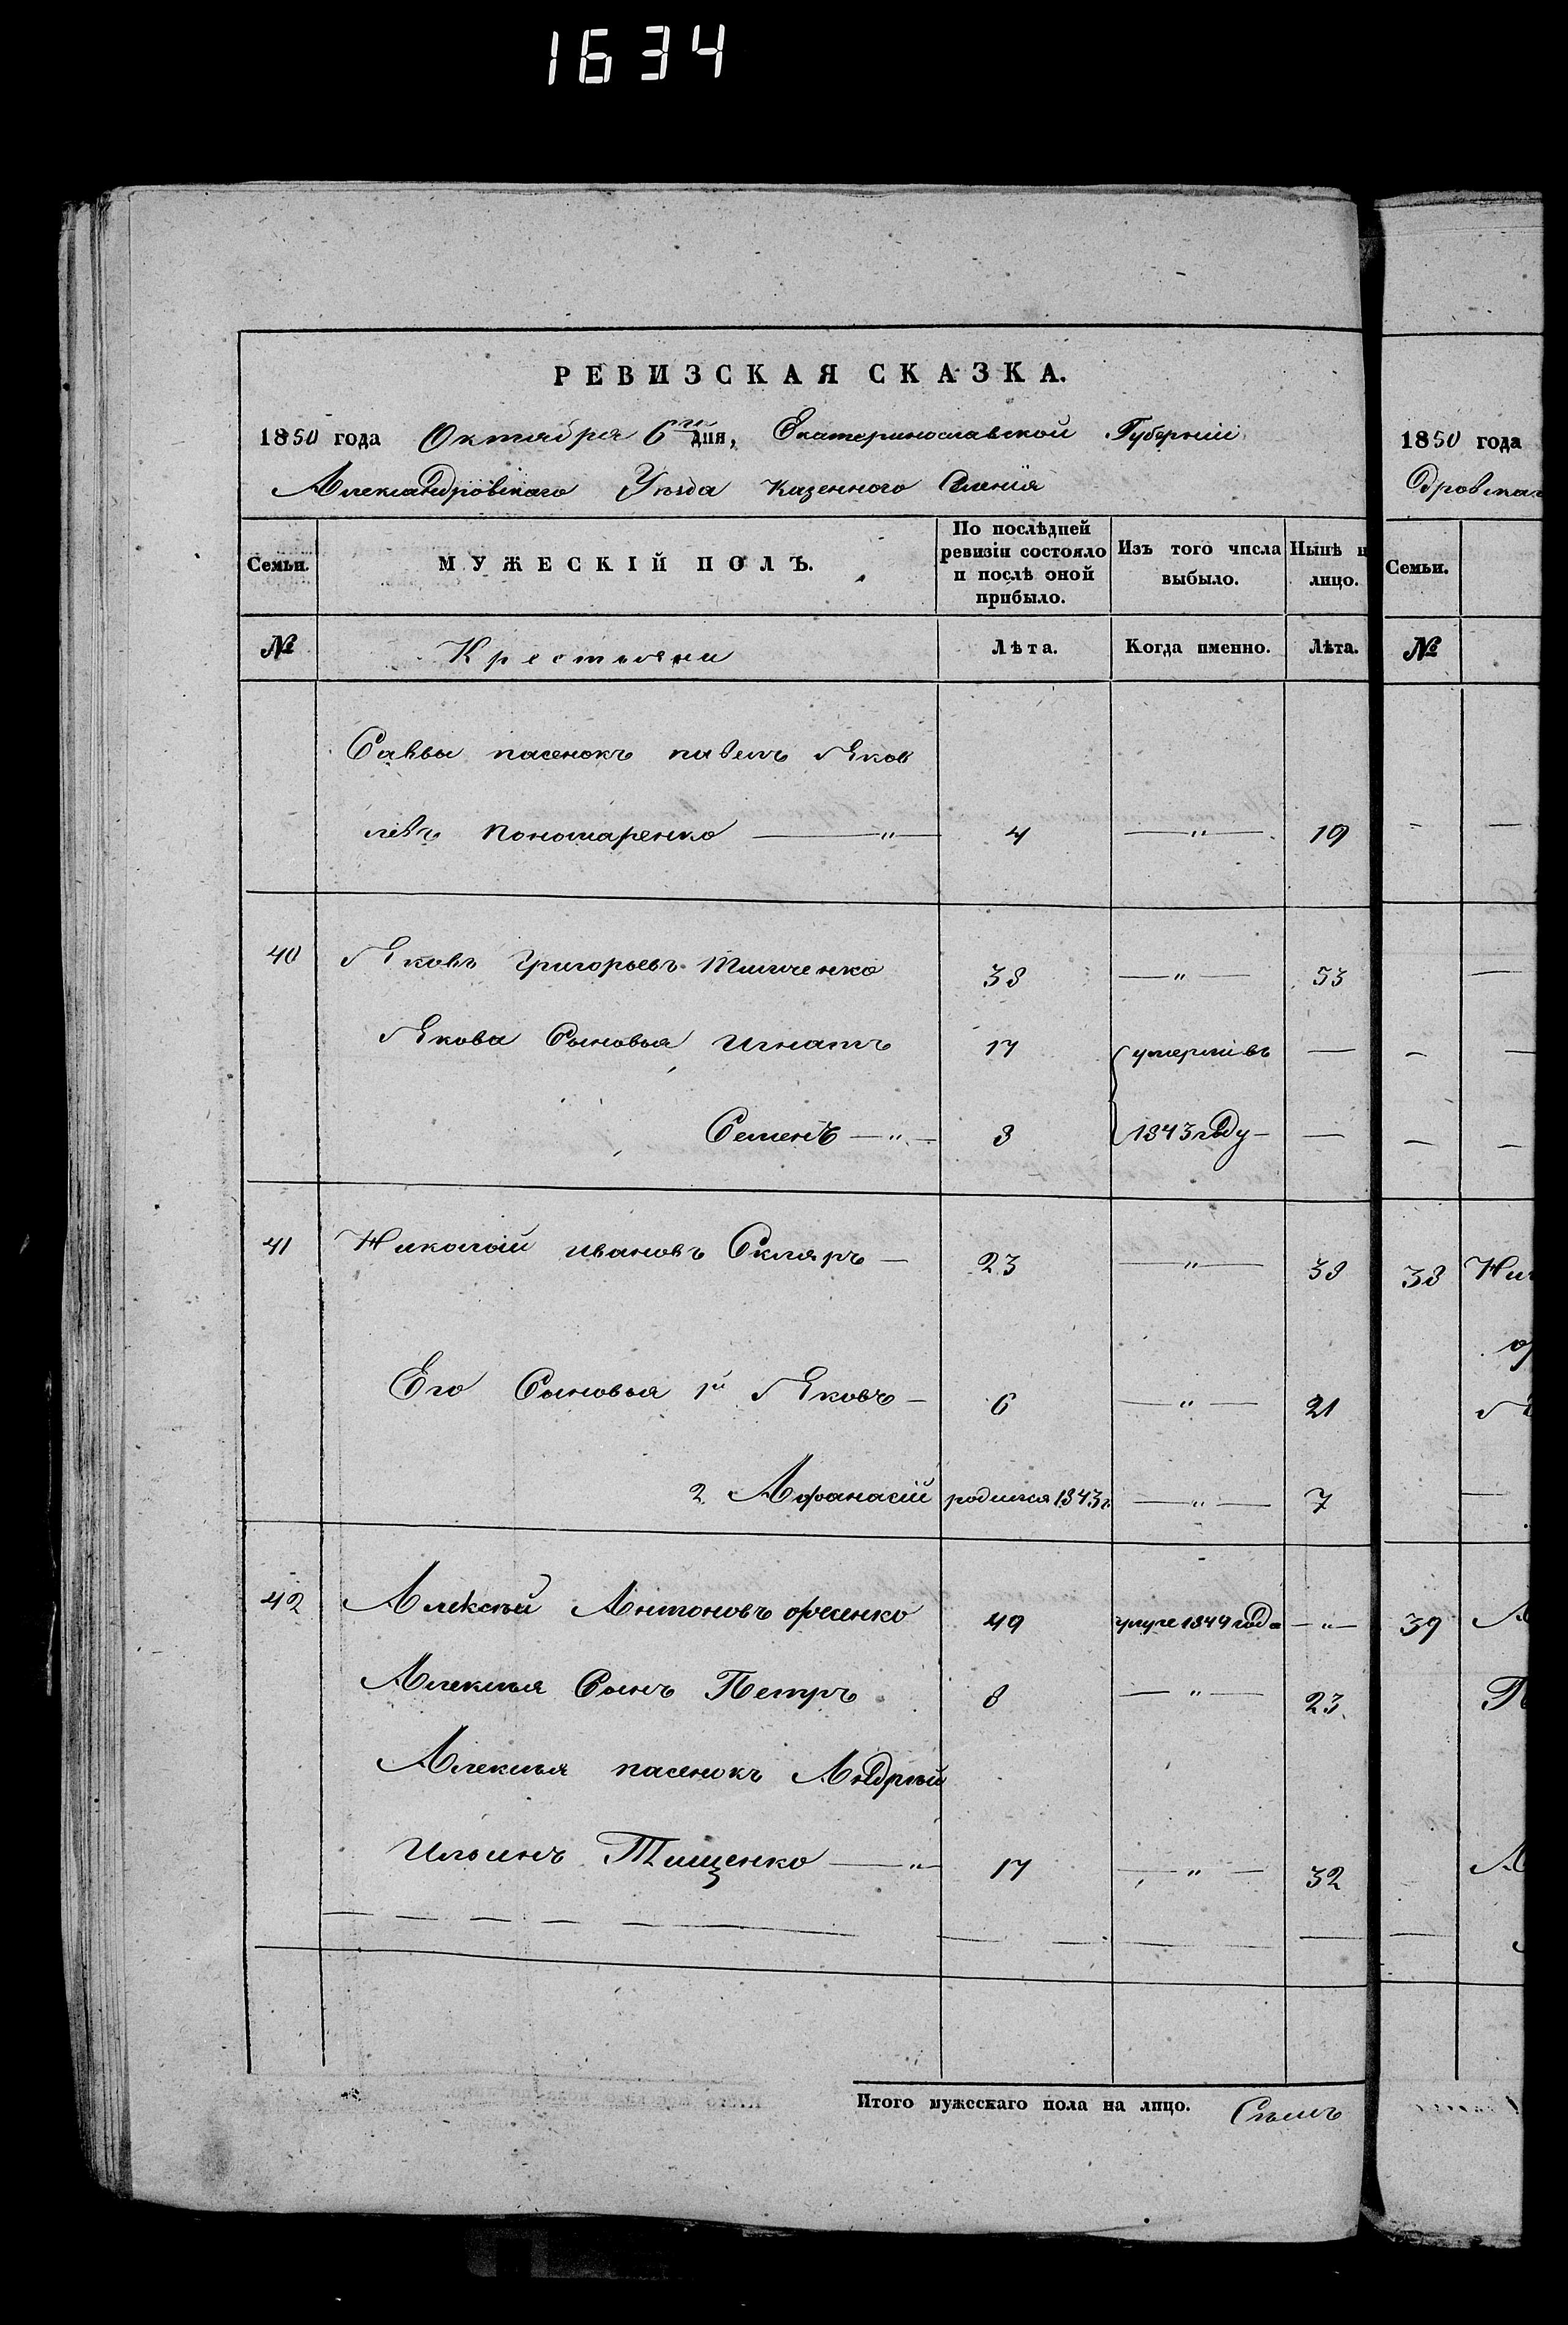 1634
РЕВИЗСКАЯ СКАЗКА.
1850 года Октября 6го дня, Екатеринославской Губерніи
Александровскаго Уезда Казенного Селенія
Семьи. МУЖЕСКІЙ ПОЛЪ. По послѣдней ревизіи состояло и послѣ оной прибыло. Изъ того числа выбыло. Нынѣ н лицо.
№ Крестьяни Лѣта. Когда именно. Лѣта.
Саввы пасенокъ павелъ Яков
левъ пономаренко — " — 4 — " — 19
40 Яковъ Григорьевъ Тищенко 38 — " — 53
Якова Сыновья Игнатъ 17 умерли въ —
Семенъ — " — 8 1843 году — —
41 Николай ивановъ Скляръ — 23 — " — 38
Его Сыновья 1й Яковъ — 6 — " — 21
2 Афанасій родился 1843 г. — " — 7
42 Алексѣй Антоновъ 49 1849 года — " —
Алексѣя Сынъ Петръ 8 — " — 23
Алексѣя пасенокъ Андрѣй
Ильинъ Тищенко — " — 17 — " — 32
Итого мужескаго пола на лицо. Сѣмъ
1850 года
дровска
Семьи.
№
38 Ни
39 А